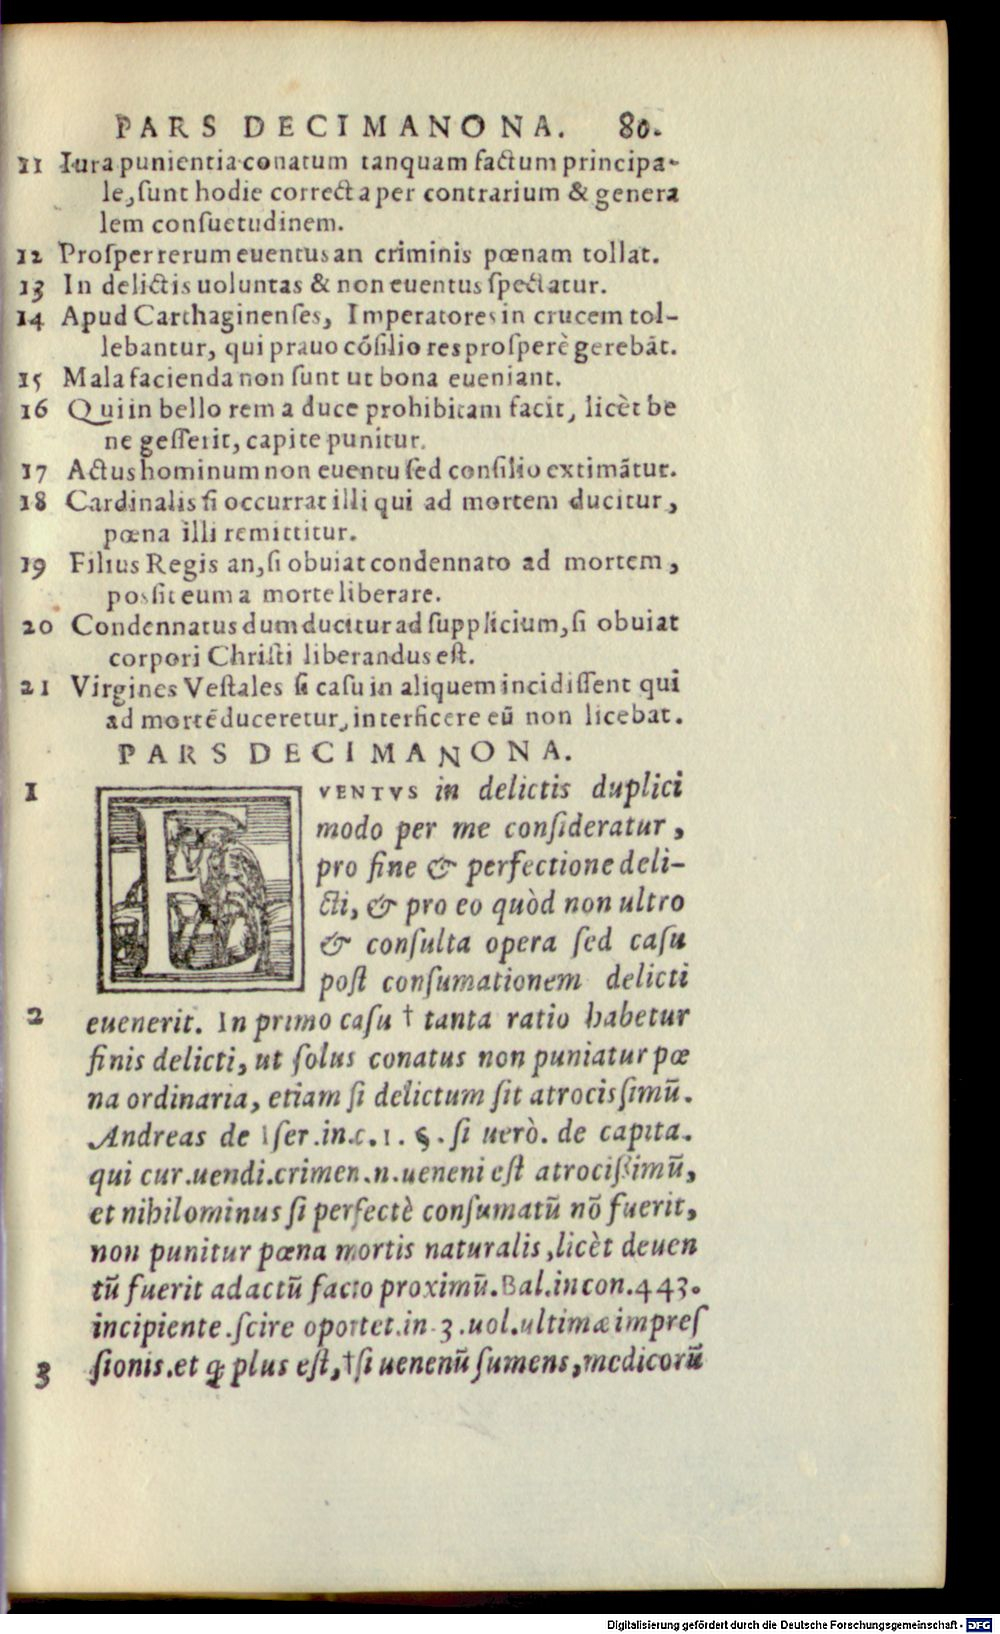 PARS DECIMANONA. 80.
11 Iura punientia conatum tanquam factum principa-
le, ſunt hodie correcta per contrarium & genera
lem conſuetudinem.
12 Proſper rerum euentus an criminis pœnam tollat.
13 In delictis uoluntas & non euentus ſpectatur.
14 Apud Carthaginenſes, Imperatores in crucem tol-
lebantur, qui prauo cōſilio res proſperè gerebāt.
15 Mala facienda non ſunt ut bona eueniant.
16 Qui in bello rem a duce prohibitam facit, licèt be
ne geſſerit, capite punitur.
17 Actus hominum non euentu ſed conſilio extimātur.
18 Cardinalis ſi occurrat illi qui ad mortem ducitur,
pœna illi remittitur.
19 Filius Regis an, ſi obuiat condennato ad mortem,
poſſit eum a morte liberare.
20 Condennatus dum ducitur ad ſupplicium, ſi obuiat
corpori Chriſti liberandus eſt.
21 Virgines Veſtales ſi caſu in aliquem incidiſſent qui
ad mortē duceretur, interficere eū non licebat.
PARS DECIMANONA.
1 EVENTVS in delictis duplici
modo per me conſideratur,
pro fine & perfectione deli-
cti, & pro eo quòd non ultro
& conſulta opera ſed caſu
poſt conſumationem delicti
2 euenerit. In primo caſu † tanta ratio habetur
finis delicti, ut ſolus conatus non puniatur pœ
na ordinaria, etiam ſi delictum ſit atrociſſimū.
Andreas de Iſer.in.c.1.§.ſi uerò. de capita.
qui cur.uendi.crimen.n.ueneni eſt atrociſſimū,
et nihilominus ſi perfectè conſumatū nō fuerit,
non punitur pœna mortis naturalis, licèt deuen
tū fuerit ad actū facto proximū. Bal.in con.443.
incipiente.ſcire oportet.in.3.uol.ultimæ impreſ
3 ſionis.et ꝙ plus eſt, † ſi uenenū ſumens, medicorū
Digitalisierung gefördert durch die Deutsche Forschungsgemeinschaft - DFG